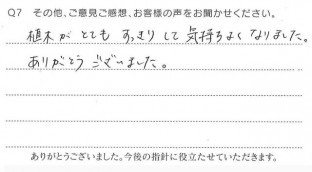 Q7 その他、ご意見ご感想、お客様の声をお聞かせください。
植木が とても すっきり して 気持ちよく なりました。
ありがとう ございました。
ありがとうございました。今後の指針に役立たせていただきます。